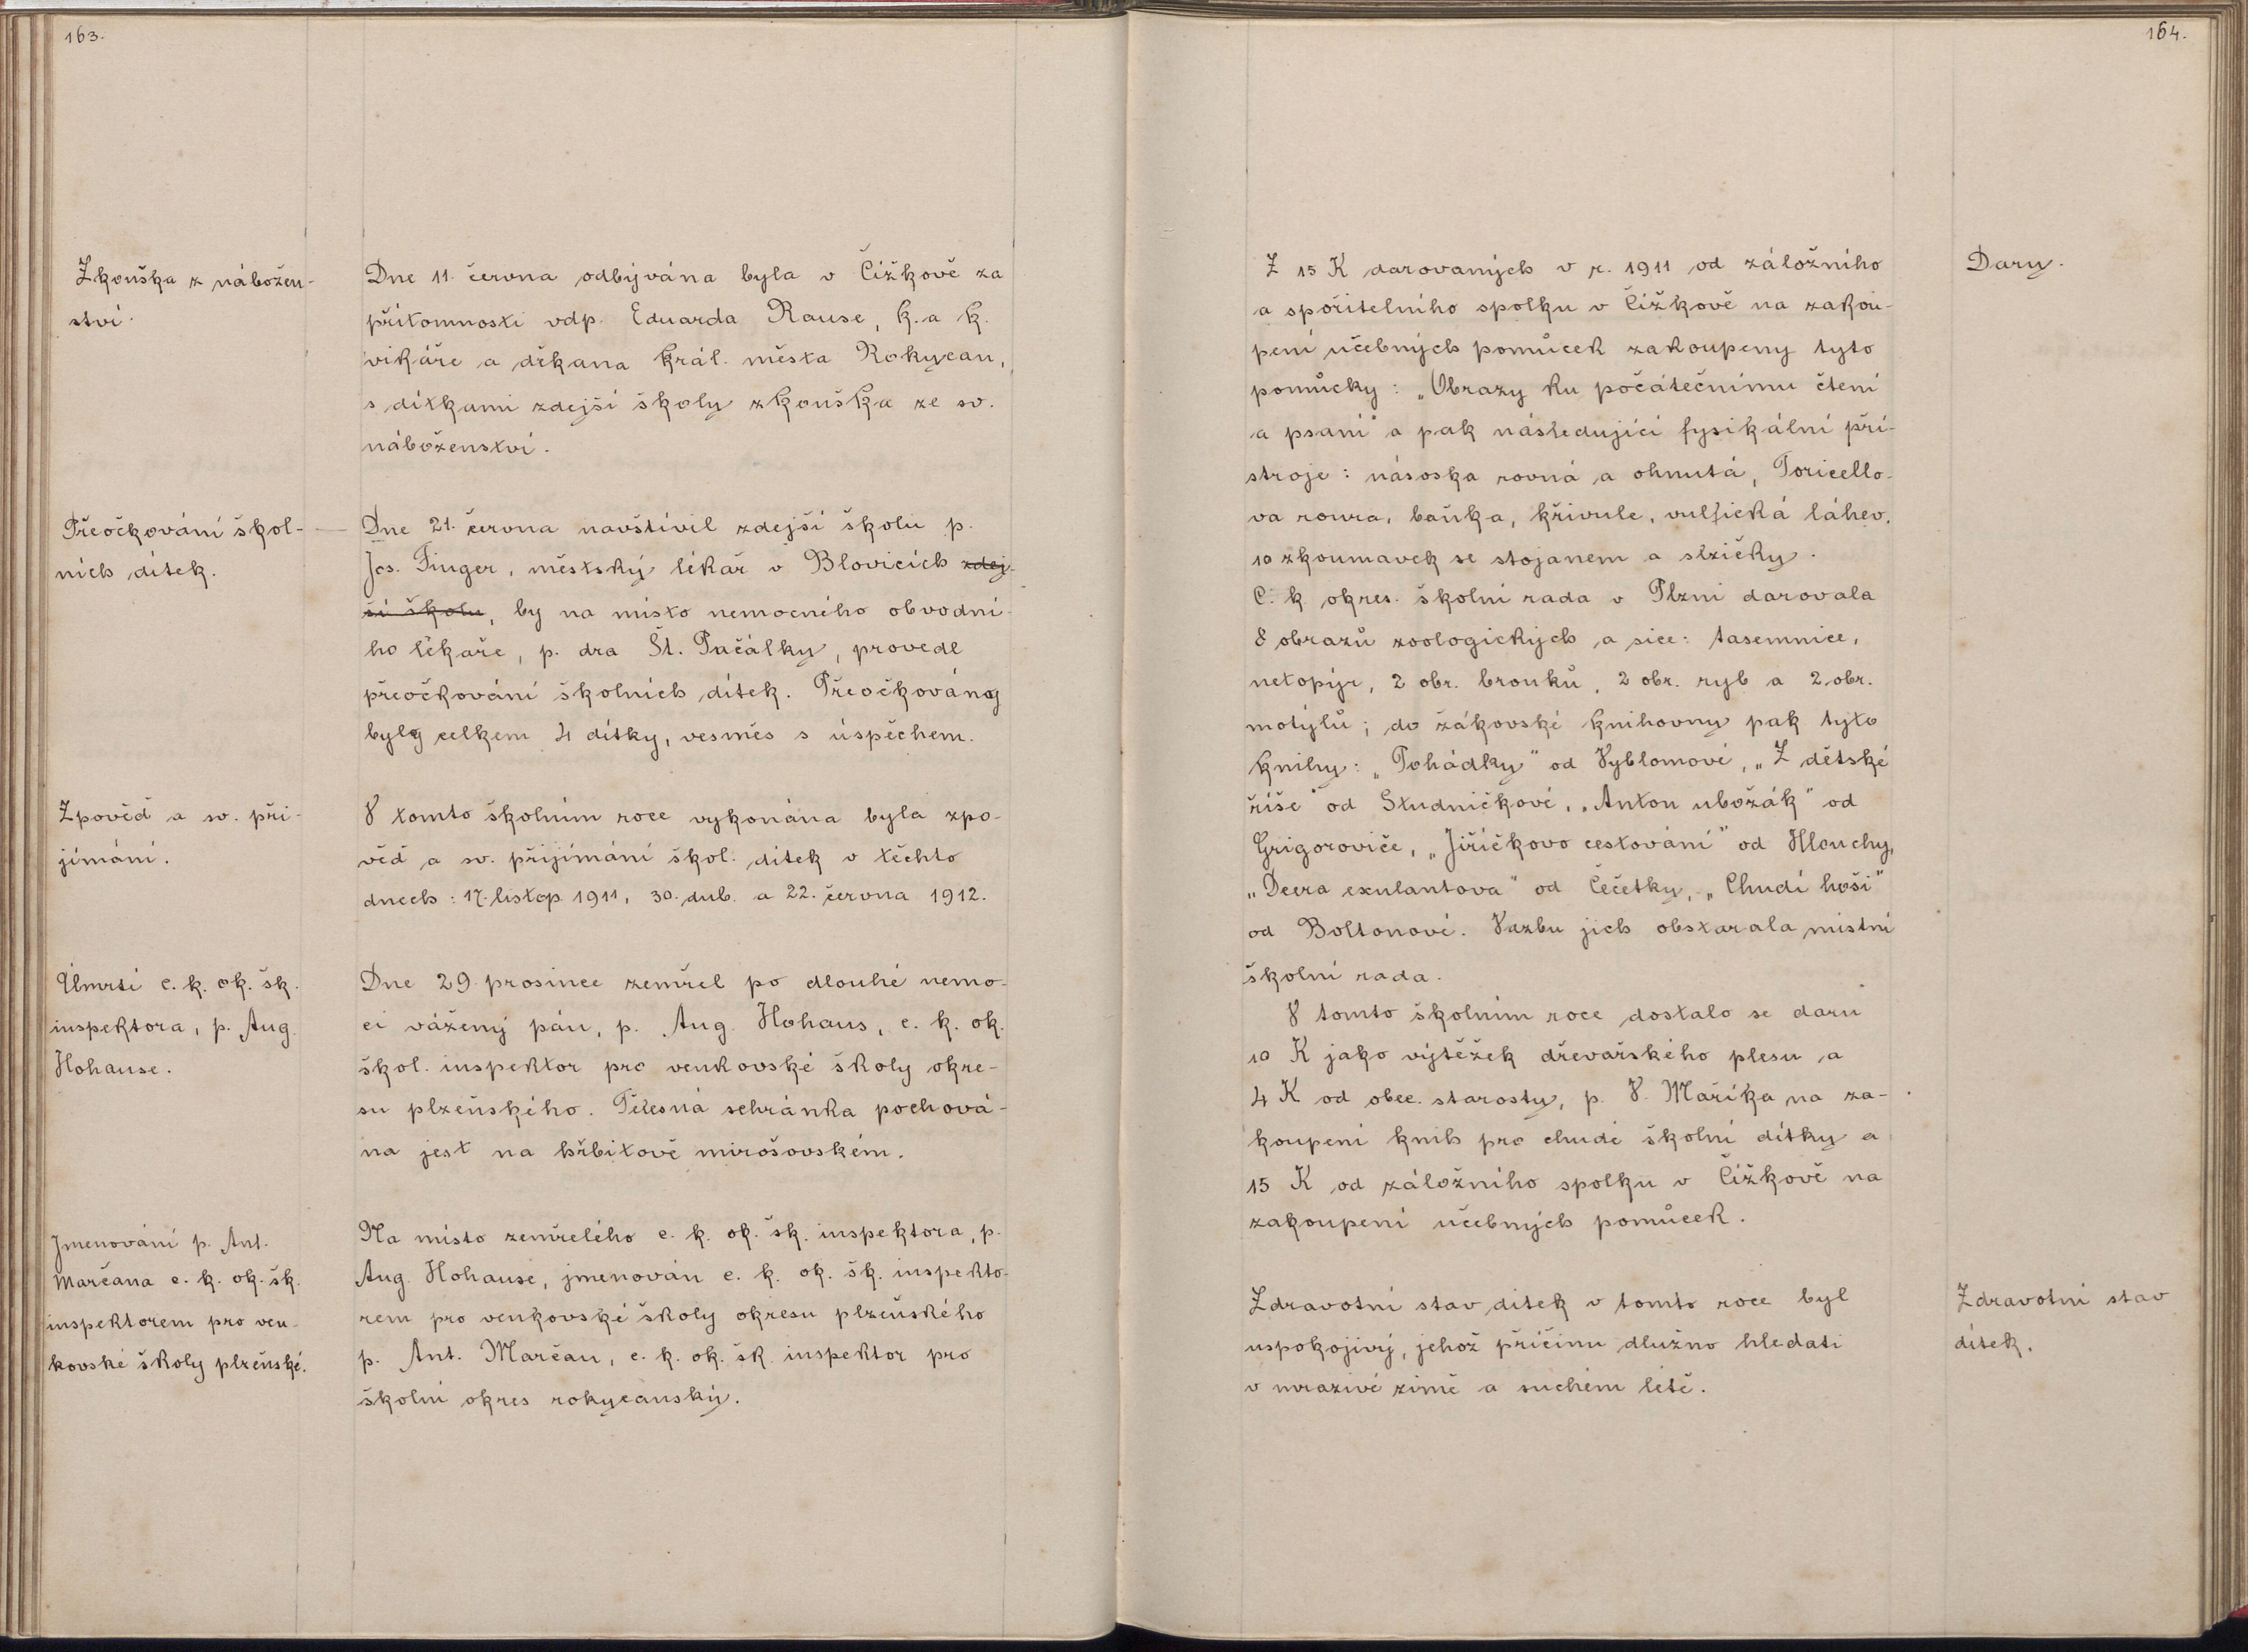 163.
Zkouška z nábožen-
ství.
Dne 11. června odbývána byla v Čížkově za
přítomnosti vdp. Eduarda Rause, k. a k.
vikáře a děkana král. města Rokycan,
s dítkami zdejší školy zkouška ze sv.
náboženství.
Přeočkování škol-
ních dítek.
Dne 21. června navštívil zdejší školu p.
Jos. Finger, městský lékař v Blovicích zdej-
ší školu, by na místo nemocného obvodní-
ho lékaře, p. dra Št. Pačálky, provedl
přeočkování školních dítek. Přeočkovány
byly celkem 4 dítky, vesměs s úspěchem.
Zpověď a sv. při-
jímání.
V tomto školním roce vykonána byla zpo-
věď a sv. přijímání škol. dítek v těchto
dnech: 17. listop. 1911, 30. dub. a 22. června 1912.
Úmrtí c. k. ok. šk.
inspektora, p. Aug.
Hohause.
Dne 29. prosince zemřel po dlouhé nemo-
ci vážený pán, p. Aug. Hohaus, c. k. ok.
škol. inspektor pro venkovské školy okre-
su plzeňského. Tělesná schránka pochová-
na jest na hřbitově mirošovském.
Jmenování p. Ant.
Marčana c. k. ok. šk.
inspektorem pro ven-
kovské školy plzeňské.
Na místo zemřelého c. k. ok. šk. inspektora, p.
Aug. Hohause, jmenován c. k. ok. šk. inspekto-
rem pro venkovské školy okresu plzeňského
p. Ant. Marčan, c. k. ok. šk. inspektor pro
školní okres rokycanský.
164.
Dary.
Z 15 K darovaných v r. 1911 od záložního
a spořitelního spolku v Čížkově na zakou-
pení učebných pomůcek zakoupeny tyto
pomůcky: „Obrazy ku počátečnímu čtení
a psaní" a pak následující fysikální pří-
stroje: násoska rovná a ohnutá, Toricello-
va roura, baňka, křivule, vulfická láhev,
10 zkoumavek se stojanem a slzičky.
C. k. okres. školní rada v Plzni darovala
8 obrazů zoologických a sice: tasemnice,
netopýr, 2 obr. brouků, 2 obr. ryb a 2 obr.
motýlů; do žákovské knihovny pak tyto
knihy: „Pohádky" od Vyblomové, „Z dětské
říše" od Studničkové, „Anton ubožák" od
Grigoroviče, „Jiříčkovo cestování" od Hlouchy,
„Dcera exulantova" od Čečetky, „Chudí hoši"
od Boltonové. Vazbu jich obstarala místní
školní rada.
V tomto školním roce dostalo se daru
10 K jako výtěžek dřevařského plesu a
4 K od obec. starosty, p. V. Maříka na za-
koupení knih pro chudé školní dítky a
15 K od záložního spolku v Čížkově na
zakoupení učebných pomůcek.
Zdravotní stav
dítek.
Zdravotní stav dítek v tomto roce byl
uspokojivý, jehož příčinu dlužno hledati
v mrazivé zimě a suchém létě.